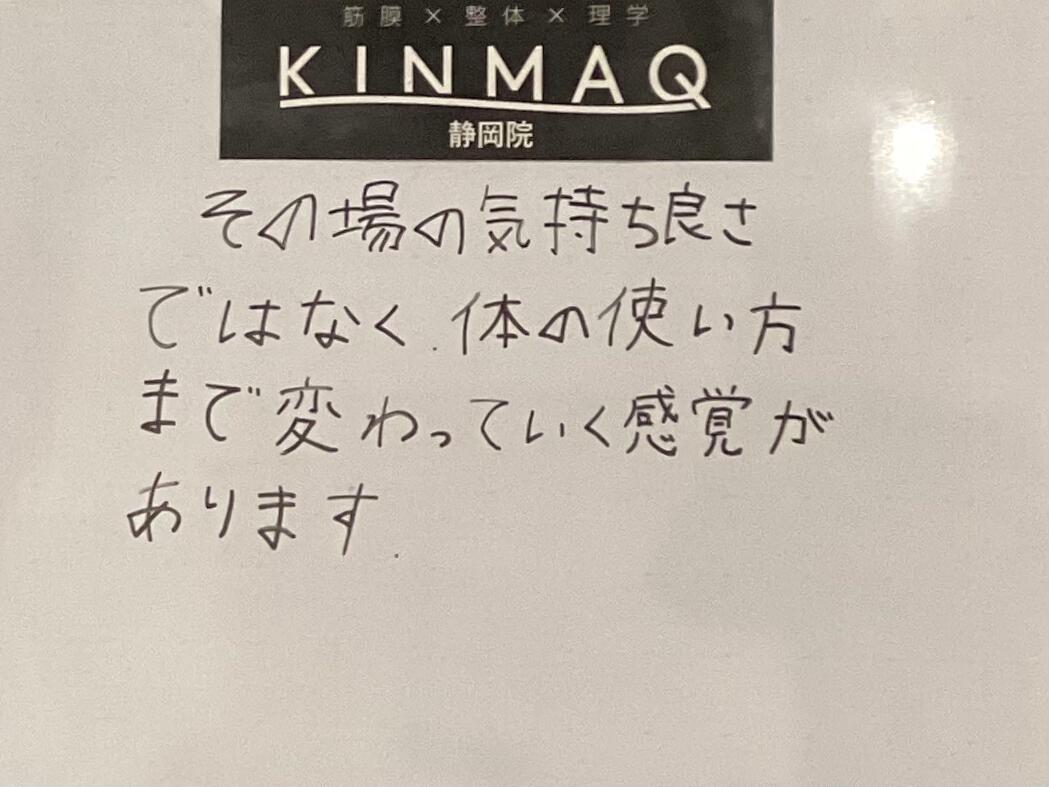 筋膜×整体×理学
KINMAQ
静岡院
その場の気持ち良さ
ではなく.体の使い方
まで変わっていく感覚が
あります.